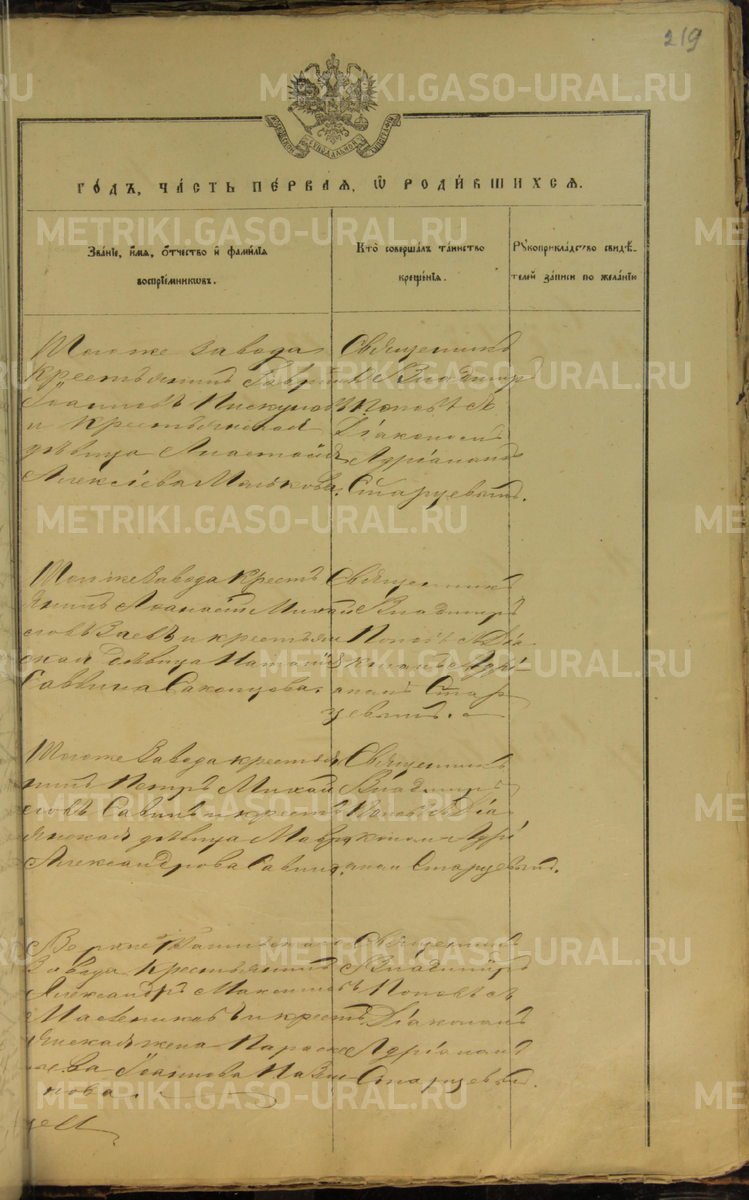 219
МОСКОВСКОЙ СѴНОДАЛЬНОЙ ТИПОГРАФІИ
ГОДЪ, ЧАСТЬ ПЕРВАЯ, Ѡ РОДИВШИХСЯ.
Званіе, имя, отчество и фамилія
воспріемниковъ.
Кто совершалъ таинство
крещенія.
Рукоприкладство свидѣ-
телей записи по желанію
Тогоже завода
крестьянинъ Гавріилъ
Іоанновъ Пискуновъ
и крестьянская
дѣвица Анастасія
Алексіева Малькова.
Священникъ
Владимиръ
Поповъ съ
Діакономъ
Адріаномъ
Старцевымъ.
Тогоже завода крестъ
янинъ Аѳанасій Михай
ловъ Заевъ и крестьян
ская дѣвица Наталія
Саввина
Священникъ
Владимиръ
Поповъ съ Діа
кономъ Адрі
аномъ Стар
цевымъ.
Тогоже завода крестья
нинъ Петръ Михай
ловъ Савинъ и кресть
янская дѣвица Мавра
Александрова Савина.
Священникъ
Владимиръ
Поповъ съ Діа
кономъ Адрі
аномъ Старцевымъ.
завода крестьянинъ
Александръ Максимовъ
Масленниковъ и кресть
янская жена Параске
ва Іоаннова
Священникъ
Владимиръ
Поповъ съ
Діакономъ
Адріаномъ
Старцевымъ.
METRIKI.GASO-URAL.RU